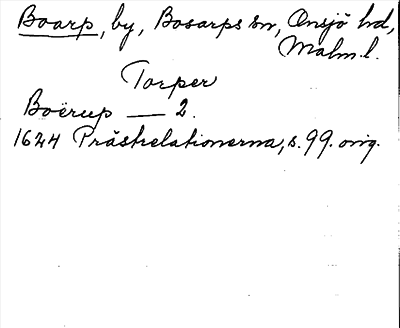 Boarp, by, Bosarps sn, Onsjö hd,
Malm. l.
Torper
Boërup — 2.
1624 Prästrelationerna, s. 99. orig.